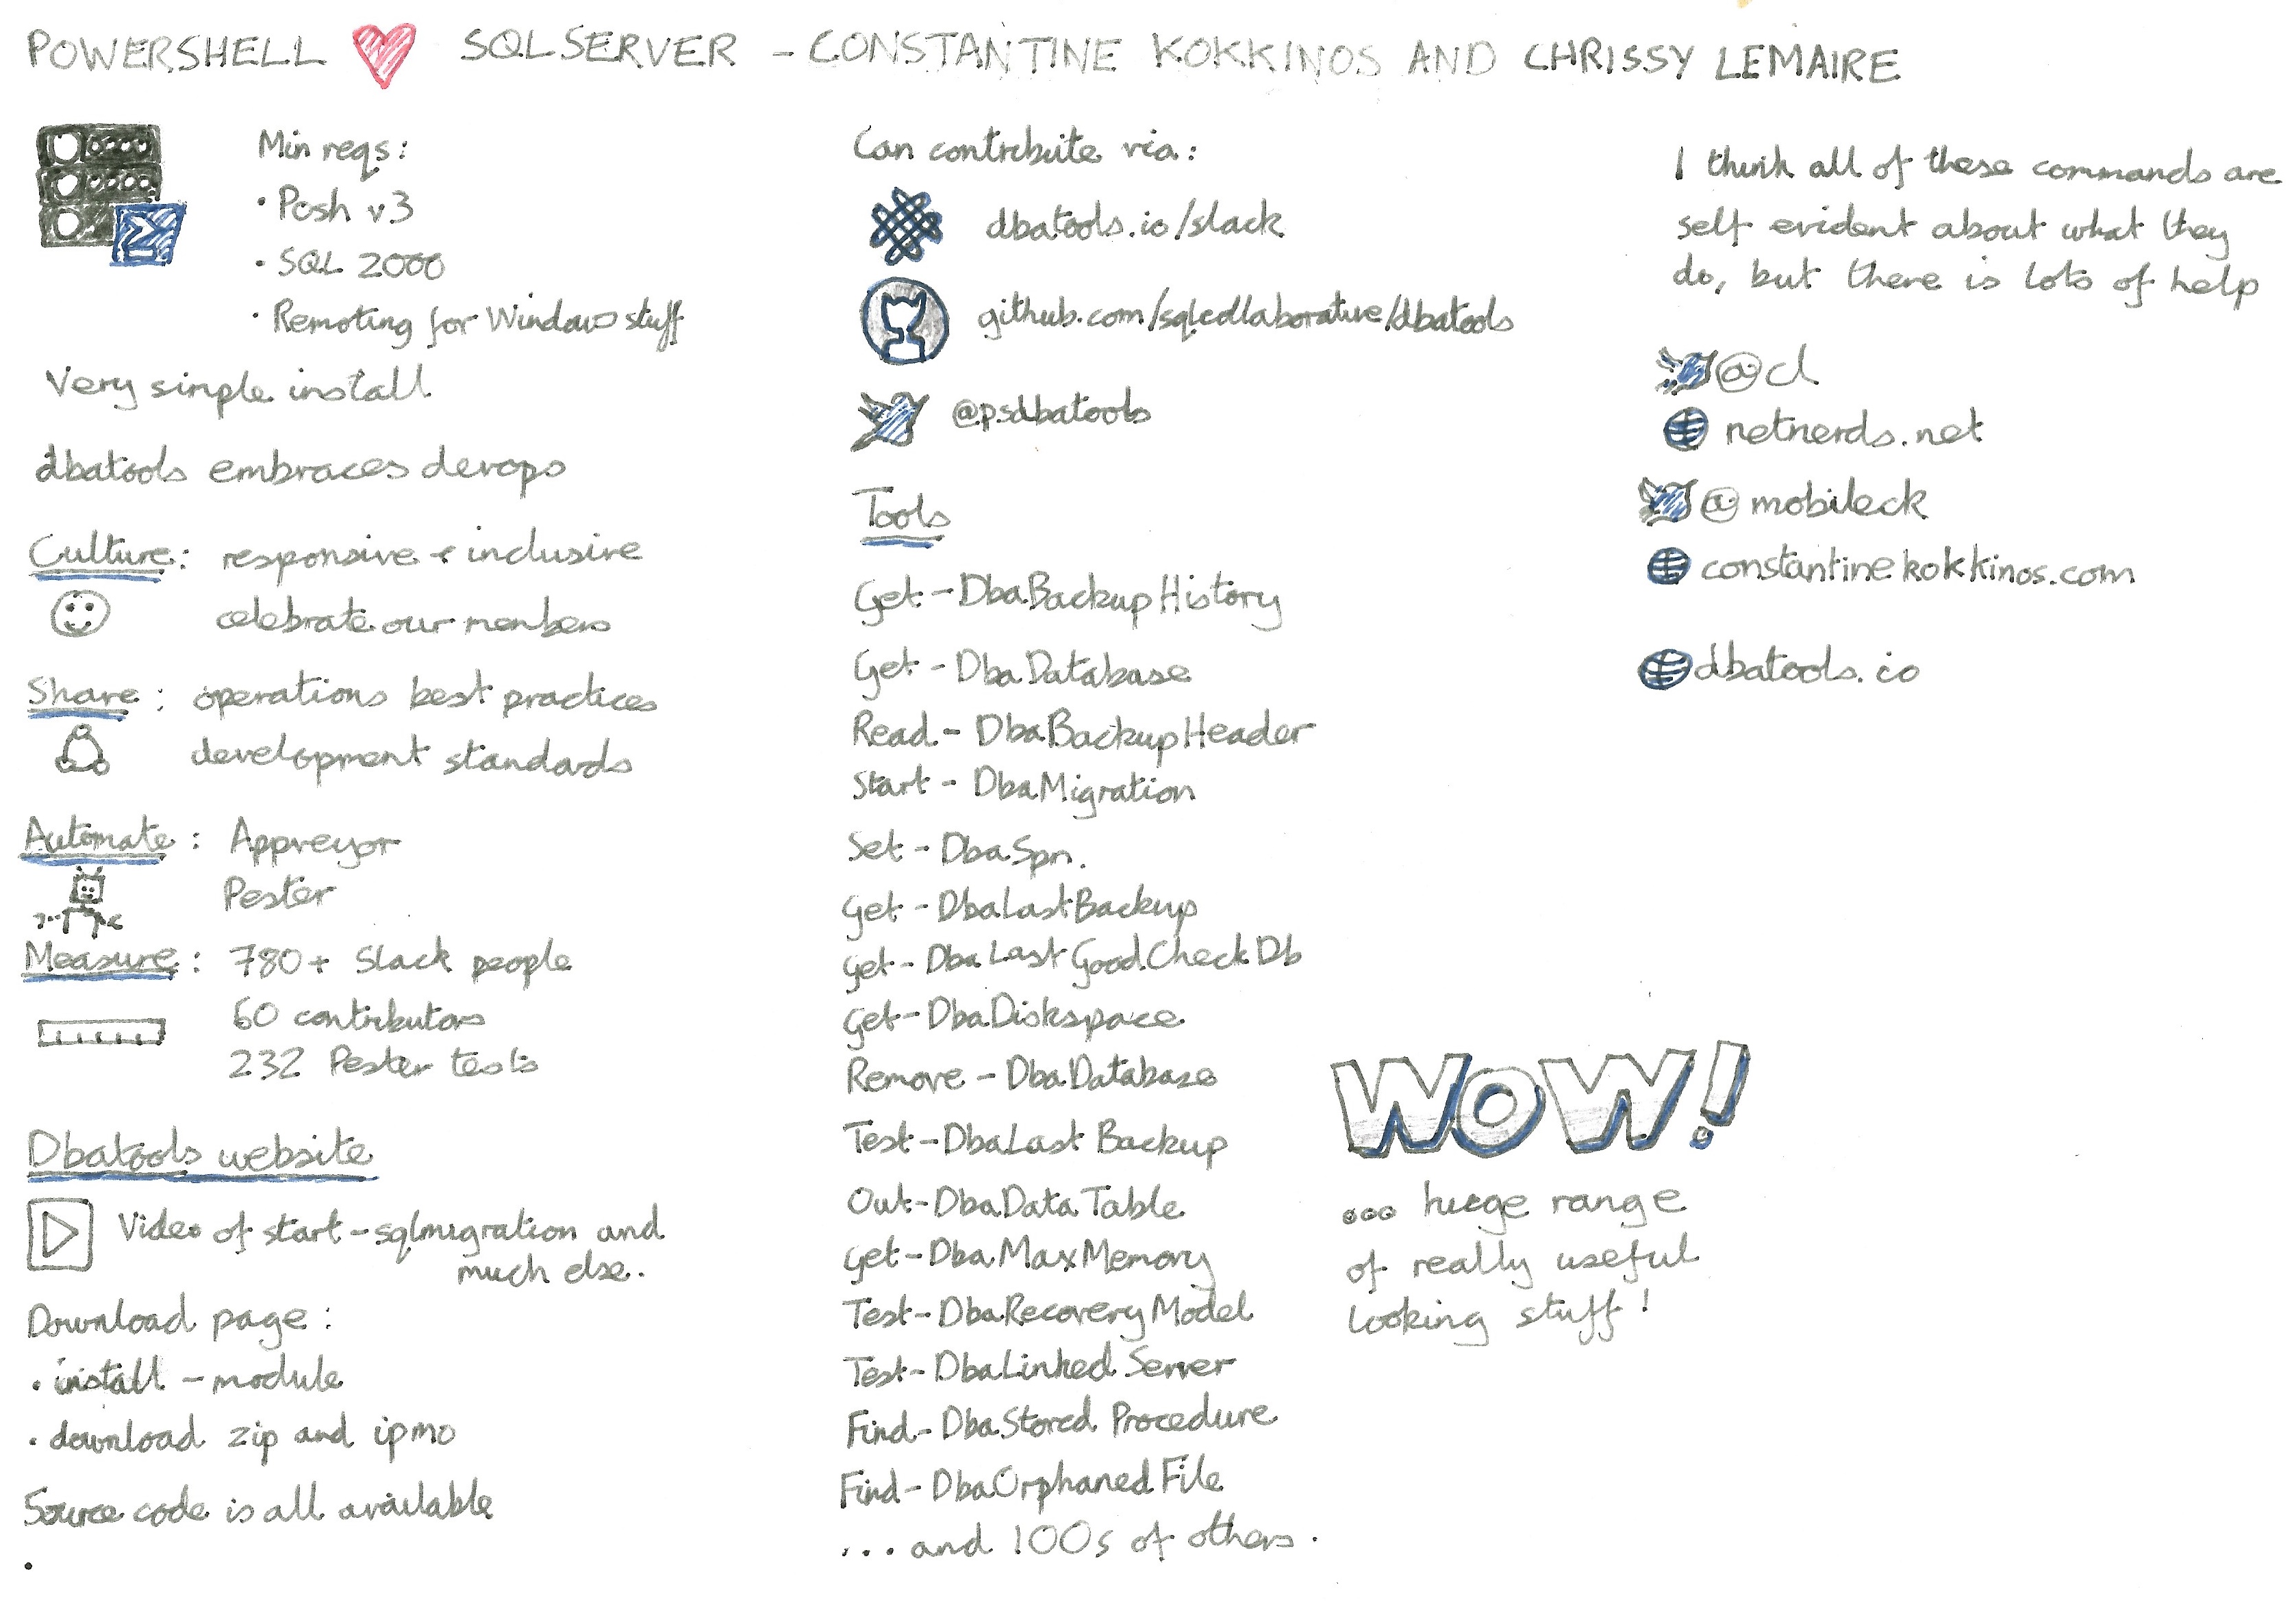 POWERSHELL SQLSERVER - CONSTANTINE KOKKINOS AND CHRISSY LEMAIRE
Min reqs:
• Posh v3
• SQL 2000
• Remoting for Windows stuff
Very simple install
dbatools embraces devops
Culture: responsive + inclusive
celebrate our members
Share: operations best practices
development standards
Automate: Appveyor
Pester
Measure: 780+ Slack people
60 contributors
232 Pester tests
Dbatools website
Video of start-sqlmigration and
much else.
Download page:
• install-module
• download zip and ipmo
Source code is all available
Can contribute via:
dbatools.io/slack
github.com/sqlcollaborative/dbatools
@psdbatools
Tools
Get-DbaBackupHistory
Get-DbaDatabase
Read-DbaBackupHeader
Start-DbaMigration
Set-DbaSpn.
Get-DbaLastBackup
Get-DbaLastGoodCheckDb
Get-DbaDiskspace
Remove-DbaDatabase
Test-DbaLastBackup
Out-DbaDataTable
Get-DbaMaxMemory
Test-DbaRecoveryModel
Test-DbaLinkedServer
Find-DbaStoredProcedure
Find-DbaOrphanedFile
... and 100s of others.
WOW!
... huge range
of really useful
looking stuff!
I think all of these commands are
self evident about what they
do, but there is lots of help
@cl
netnerds.net
@mobileck
constantinekokkinos.com
dbatools.io